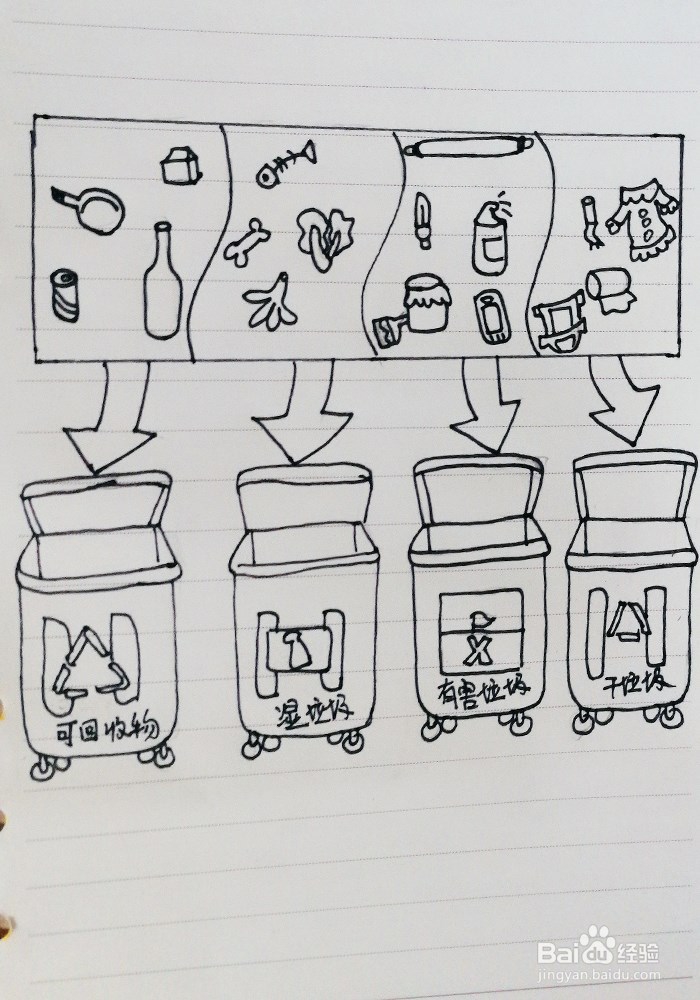 可回收物
湿垃圾
有害垃圾
干垃圾
Baidu经验
jingyan.baidu.com